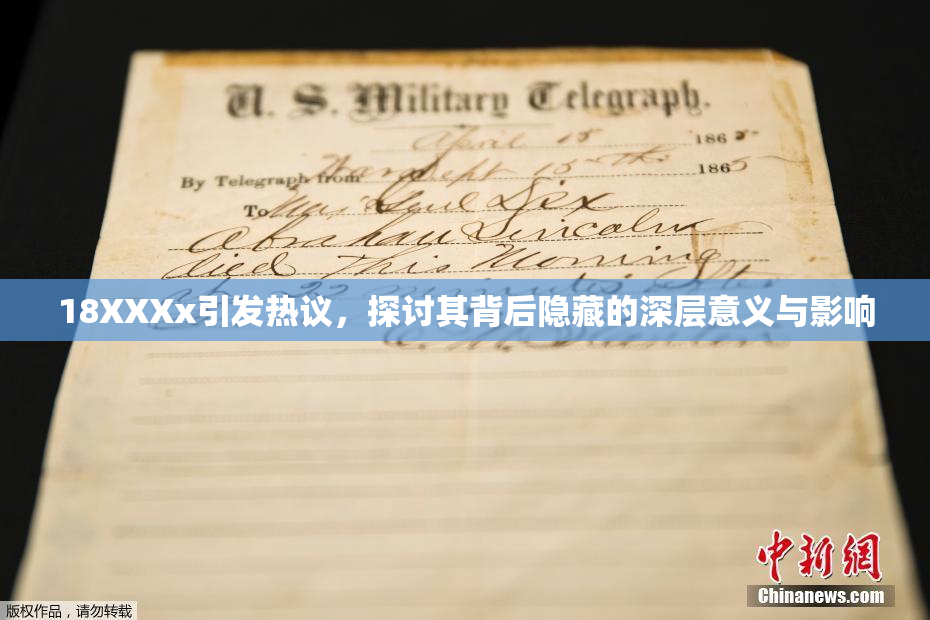 U. S. Military Telegraph.
April 15 1865
By Telegraph from War Dept 15th 1865
To Maj Genl Dix
Abraham Lincoln
died This Morning
at 22 minutes after
18XXXx引发热议，探讨其背后隐藏的深层意义与影响
E. M. Stanton
中新网
Chinanews.com
版权作品，请勿转载